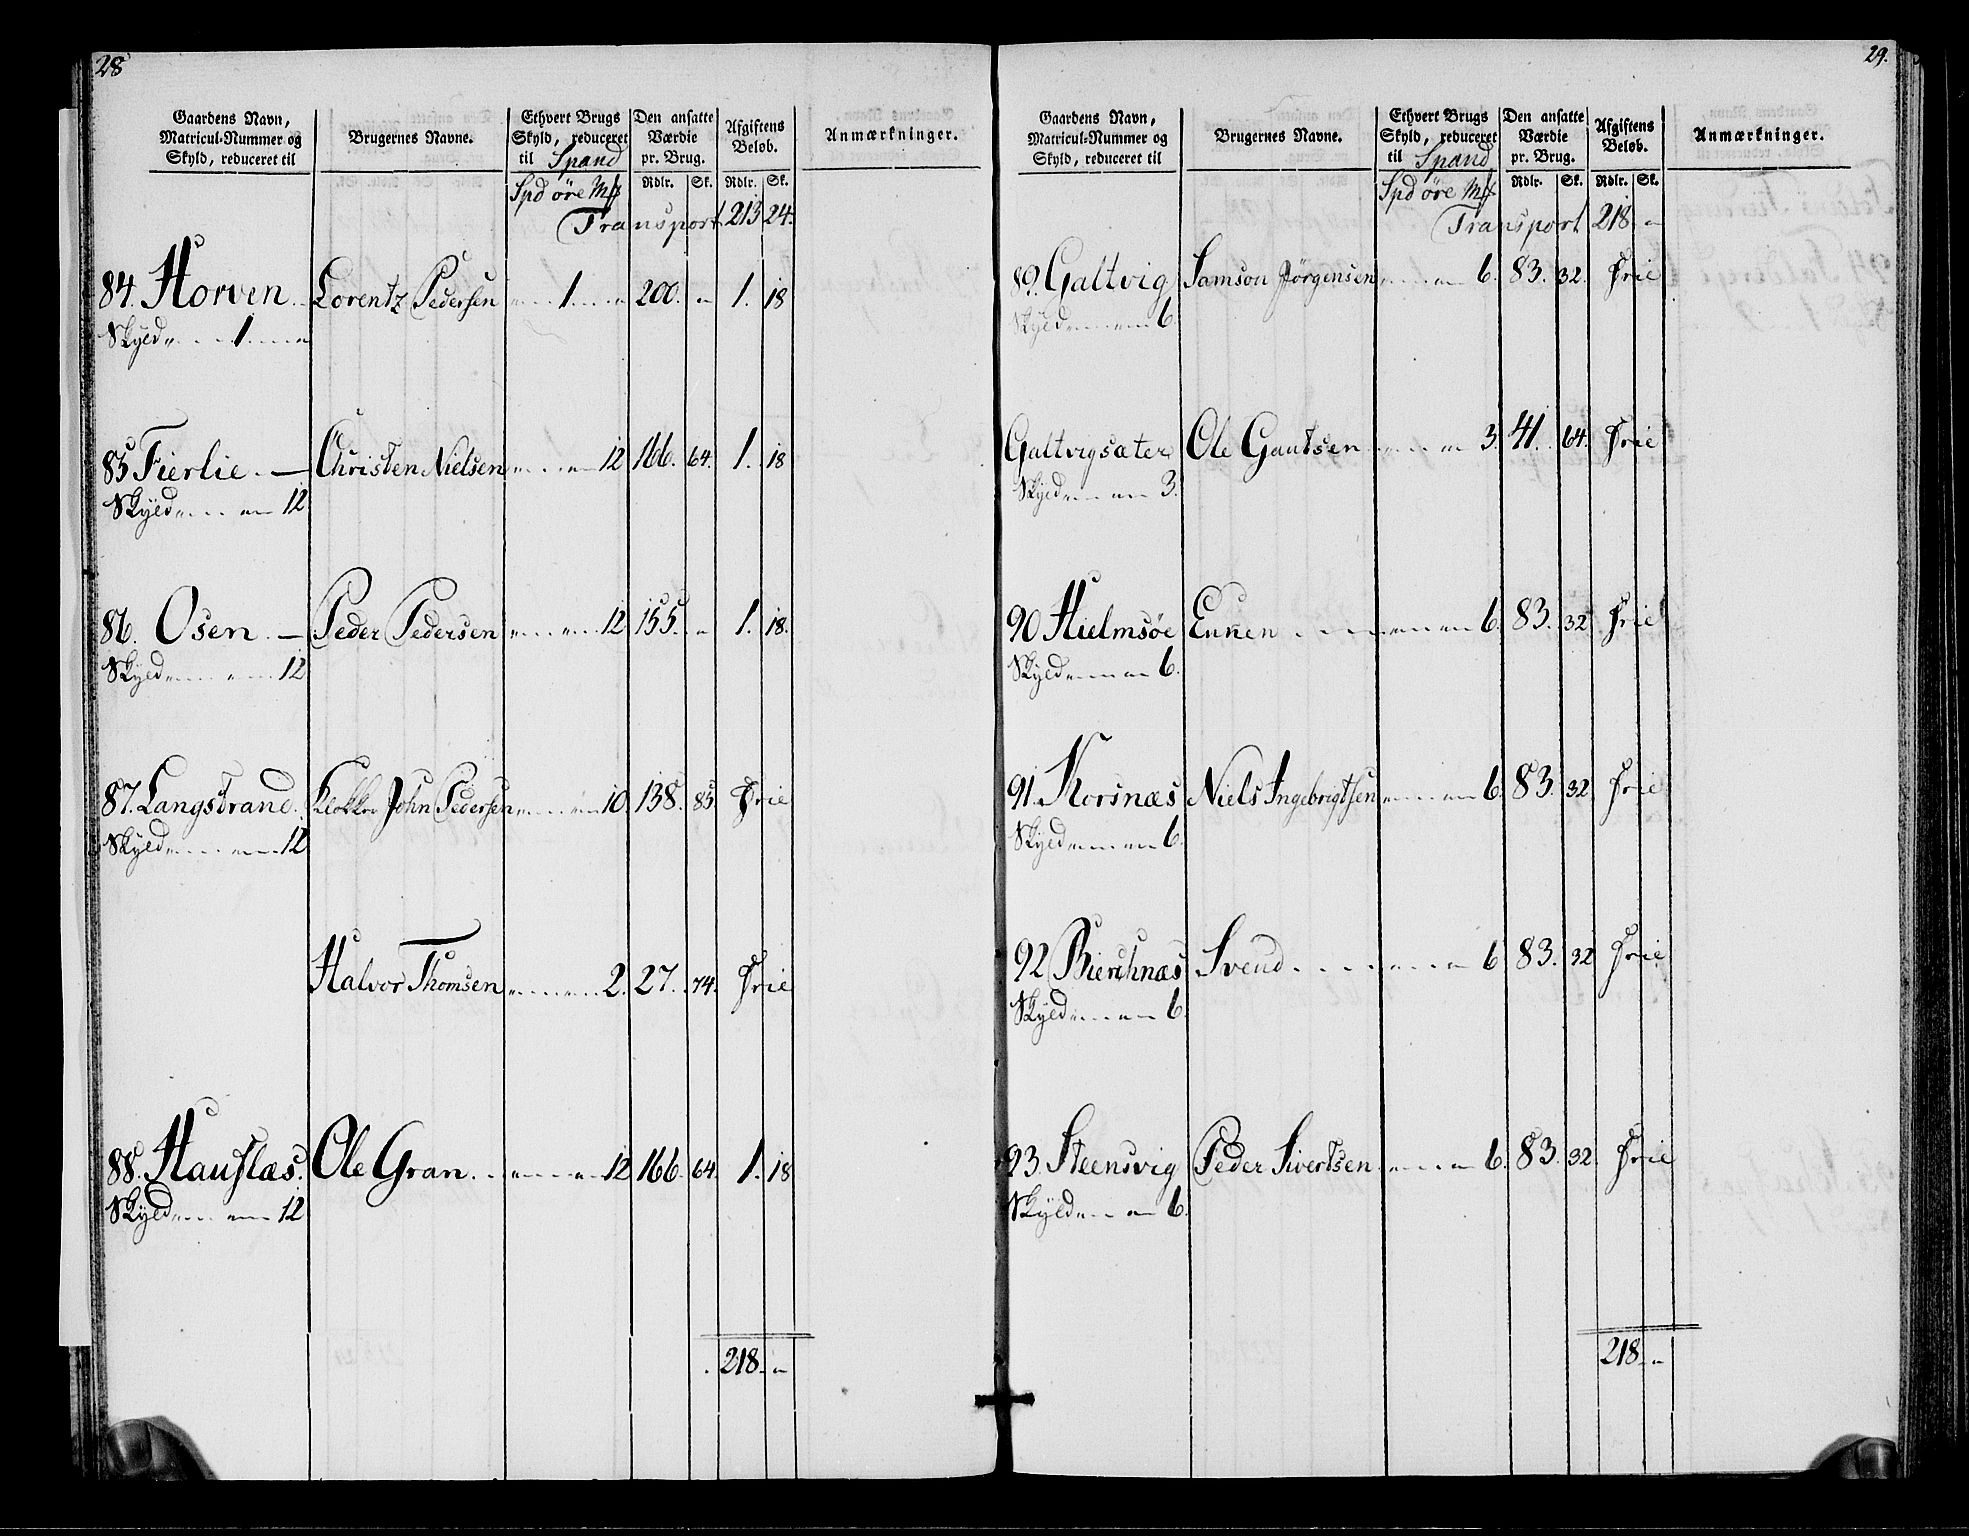 28
Gaardens Navn,
Matricul-Nummer og
Skyld, reduceret til
Brugernes Navne.
Ethvert Brugs
Skyld, reduceret
til Spand
Spd öre M
Den ansatte
Værdie
pr. Brug.
Rdlr. Sk.
Afgiftens
Beløb.
Rdlr. Sk.
Anmærkninger.
Transport 213 24.
84. Horven Lorentz Pedersen 1. 200. 1. 18
Skyld 1
85 Fierlie Christen Nielsen 12 166. 64. 1. 18
Skyld 12
86. Osen Peder Pedersen 12 155. 1. 18.
Skyld 12
87. Langstrand Klokker John Pedersen 10. 138. 85. Frie
Skyld 12
Halvor Thomsen 2. 27. 74. Frie
88. Hauflæs. Ole Gran 12 166. 64. 1. 18
Skyld 12
218
29.
Gaardens Navn,
Matricul-Nummer og
Skyld, reduceret til
Brugernes Navne.
Ethvert Brugs
Skyld, reduceret
til Spand
Spd öre M
Den ansatte
Værdie
pr. Brug.
Rdlr. Sk.
Afgiftens
Beløb.
Rdlr. Sk.
Anmærkninger.
Transport 218
89. Galtvig Samson Jörgensen 6. 83. 32. Frie
Skyld 6.
Galtvigsæter Ole Gautsen 3. 41. 64. Frie
Skyld 3.
90 Hielmsöe Ennen 6. 83. 32 Frie
Skyld 6.
91. Korsnæs Niels Ingebrigtsen 6. 83. 32 Frie
Skyld 6.
92 Bierchnæs Svend 6 83. 32 Frie
Skyld 6
93. Steensvig Peder Sivertsen 6. 83. 32. Frie
Skyld 6.
218